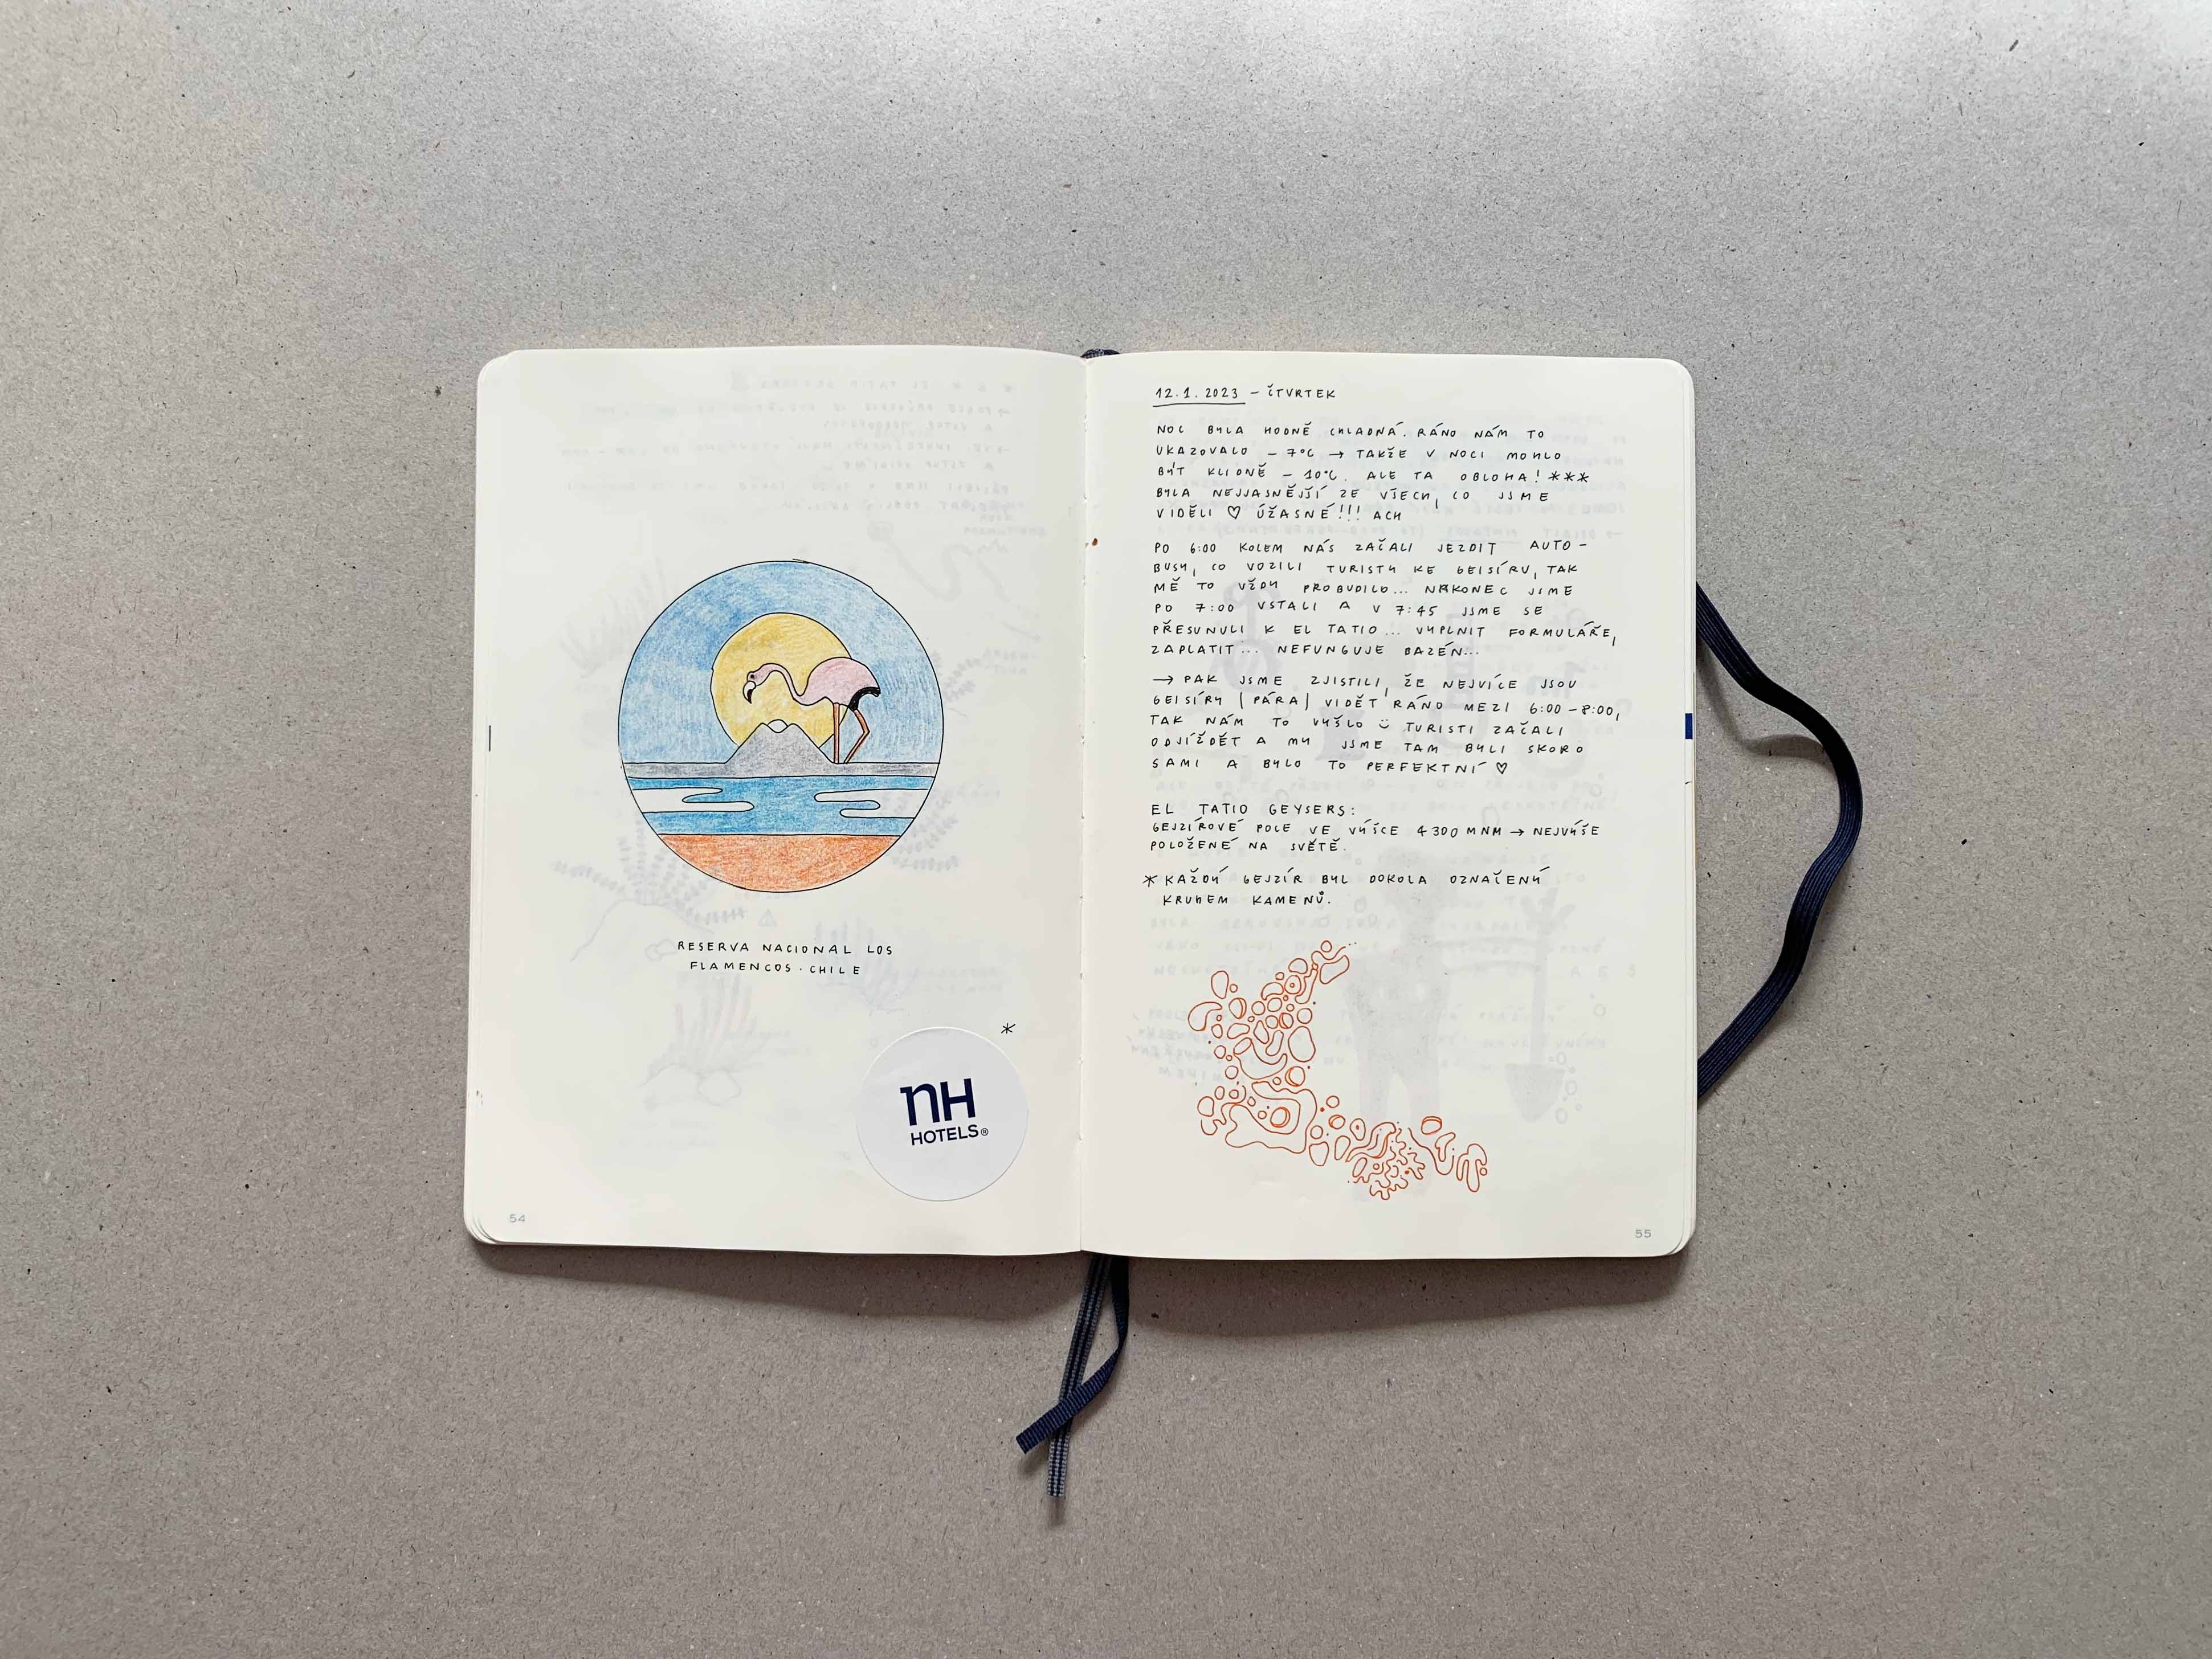 RESERVA NACIONAL LOS
FLAMENCOS · CHILE
*
nH
HOTELS®
54
12.1.2023 – ČTVRTEK
NOC BYLA HODNĚ CHLADNÁ. RÁNO NÁM TO
UKAZOVALO – 7°C → TAKŽE V NOCI MOHLO
BÝT KLIDNĚ – 10°C. ALE TA OBLOHA! ***
BYLA NEJJASNĚJŠÍ ZE VŠECH, CO JSME
VIDĚLI ♡ ÚŽASNÉ!!! ACH
PO 6:00 KOLEM NÁS ZAČALI JEZDIT AUTO–
BUSY, CO VOZILI TURISTY KE GEISÍRU, TAK
MĚ TO VŽDY PROBUDILO... NAKONEC JSME
PO 7:00 VSTALI A V 7:45 JSME SE
PŘESUNULI K EL TATIO... VYPLNIT FORMULÁŘE,
ZAPLATIT... NEFUNGUJE BAZÉN...
→ PAK JSME ZJISTILI, ŽE NEJVÍCE JSOU
GEISÍRY | PÁRA | VIDĚT RÁNO MEZI 6:00–8:00,
TAK NÁM TO VYŠLO ☺ TURISTI ZAČALI
ODJÍŽDĚT A MY JSME TAM BYLI SKORO
SAMI A BYLO TO PERFEKTNÍ ♡
EL TATIO GEYSERS:
GEJZÍROVÉ POLE VE VÝŠCE 4300 MNM → NEJVÝŠE
POLOŽENÉ NA SVĚTĚ.
* KAŽDÝ GEJZÍR BYL DOKOLA OZNAČENÝ
KRUHEM KAMENŮ.
55